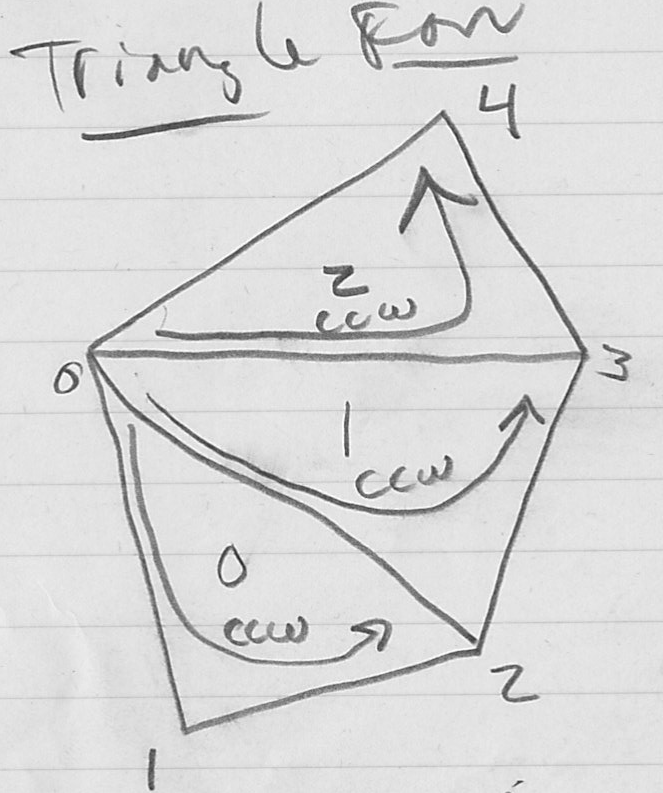 Triangle Fan
4
2
ccw
0
3
1
ccw
0
ccw
2
1